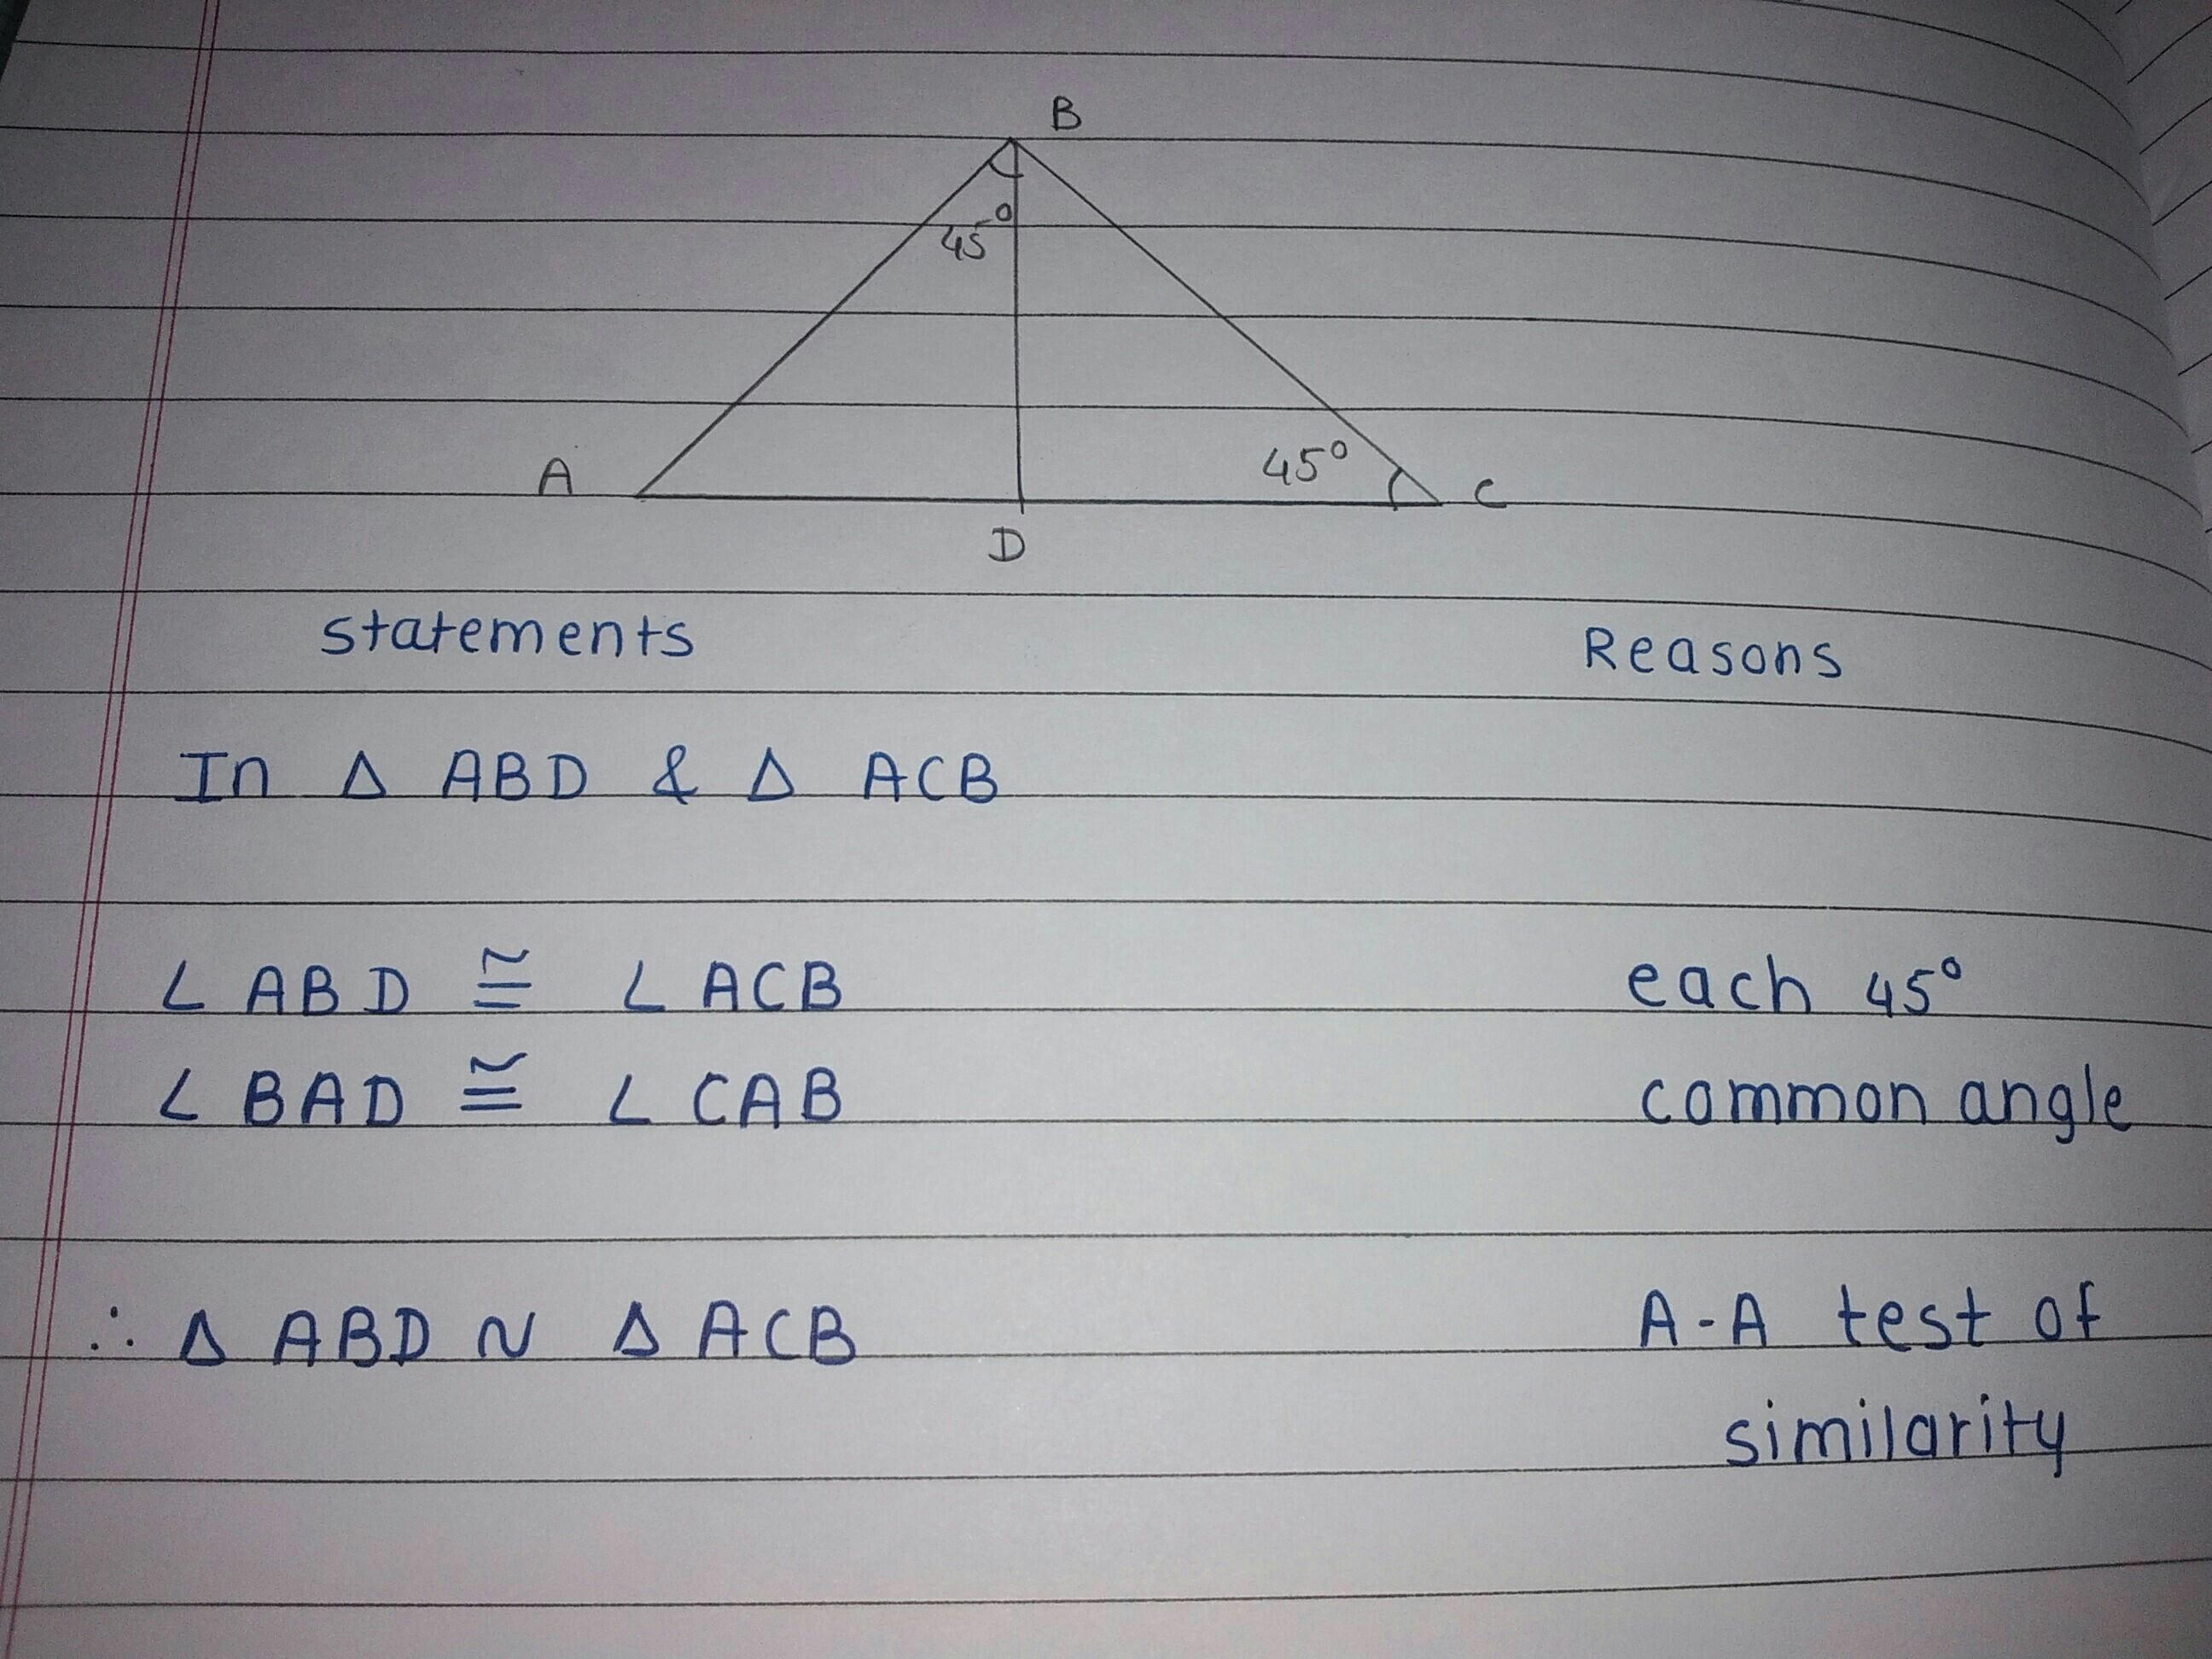 B
45°
45°
A
C
D
statements Reasons
In Δ ABD & Δ ACB
∠ ABD ≅ ∠ ACB each 45°
∠ BAD ≅ ∠ CAB common angle
∴ Δ ABD ~ Δ ACB A-A test of
similarity